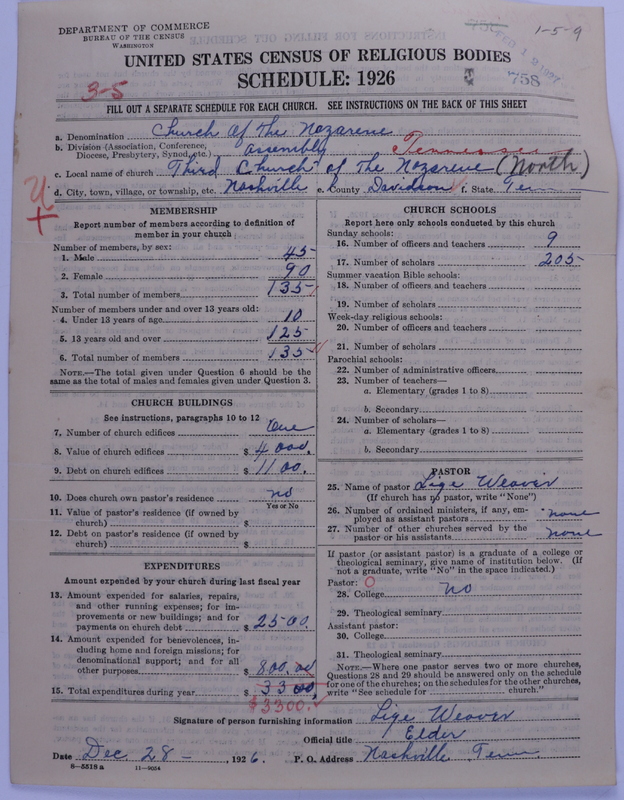 DEPARTMENT OF COMMERCE
BUREAU OF THE CENSUS
WASHINGTON
1-5-9
FEB 12 1927
758
UNITED STATES CENSUS OF RELIGIOUS BODIES
SCHEDULE: 1926
3-5
FILL OUT A SEPARATE SCHEDULE FOR EACH CHURCH. SEE INSTRUCTIONS ON THE BACK OF THIS SHEET
a. Denomination Church of the Nazarene
b. Division (Association, Conference, Diocese, Presbytery, Synod, etc.) assembly Tennessee
c. Local name of church Third Church of the Nazarene (North)
d. City, town, village, or township, etc. Nashville e. County Davidson f. State Tenn
MEMBERSHIP
Report number of members according to definition of member in your church
Number of members, by sex:
1. Male 45
2. Female 90
3. Total number of members 135
Number of members under and over 13 years old:
4. Under 13 years of age 10
5. 13 years old and over 125
6. Total number of members 135
NOTE.—The total given under Question 6 should be the same as the total of males and females given under Question 3.
CHURCH BUILDINGS
See instructions, paragraphs 10 to 12
7. Number of church edifices One
8. Value of church edifices $ 4000.
9. Debt on church edifices $ 1100.
10. Does church own pastor's residence no
Yes or No
11. Value of pastor's residence (if owned by church) $
12. Debt on pastor's residence (if owned by church) $
EXPENDITURES
Amount expended by your church during last fiscal year
13. Amount expended for salaries, repairs, and other running expenses; for improvements or new buildings; and for payments on church debt $ 2500.
14. Amount expended for benevolences, including home and foreign missions; for denominational support; and for all other purposes $ 800.00
15. Total expenditures during year $ 3300.
$3300.
CHURCH SCHOOLS
Report here only schools conducted by this church
Sunday schools:
16. Number of officers and teachers 9
17. Number of scholars 205
Summer vacation Bible schools:
18. Number of officers and teachers
19. Number of scholars
Week-day religious schools:
20. Number of officers and teachers
21. Number of scholars
Parochial schools:
22. Number of administrative officers
23. Number of teachers—
a. Elementary (grades 1 to 8)
b. Secondary
24. Number of scholars—
a. Elementary (grades 1 to 8)
b. Secondary
PASTOR
25. Name of pastor Lige Weaver
(If church has no pastor, write "None")
26. Number of ordained ministers, if any, employed as assistant pastors none
27. Number of other churches served by the pastor or his assistants none
If pastor (or assistant pastor) is a graduate of a college or theological seminary, give name of institution below. (If not a graduate, write "No" in the space indicated.)
Pastor: 0
28. College no
29. Theological seminary
Assistant pastor:
30. College
31. Theological seminary
NOTE.—Where one pastor serves two or more churches, Questions 28 and 29 should be answered only on the schedule for one of the churches; on the schedules for the other churches, write "See schedule for church."
Signature of person furnishing information Lige Weaver
Official title Elder
Date Dec 28 -, 1926. P. O. Address Nashville Tenn
8—5518 a 11—9054